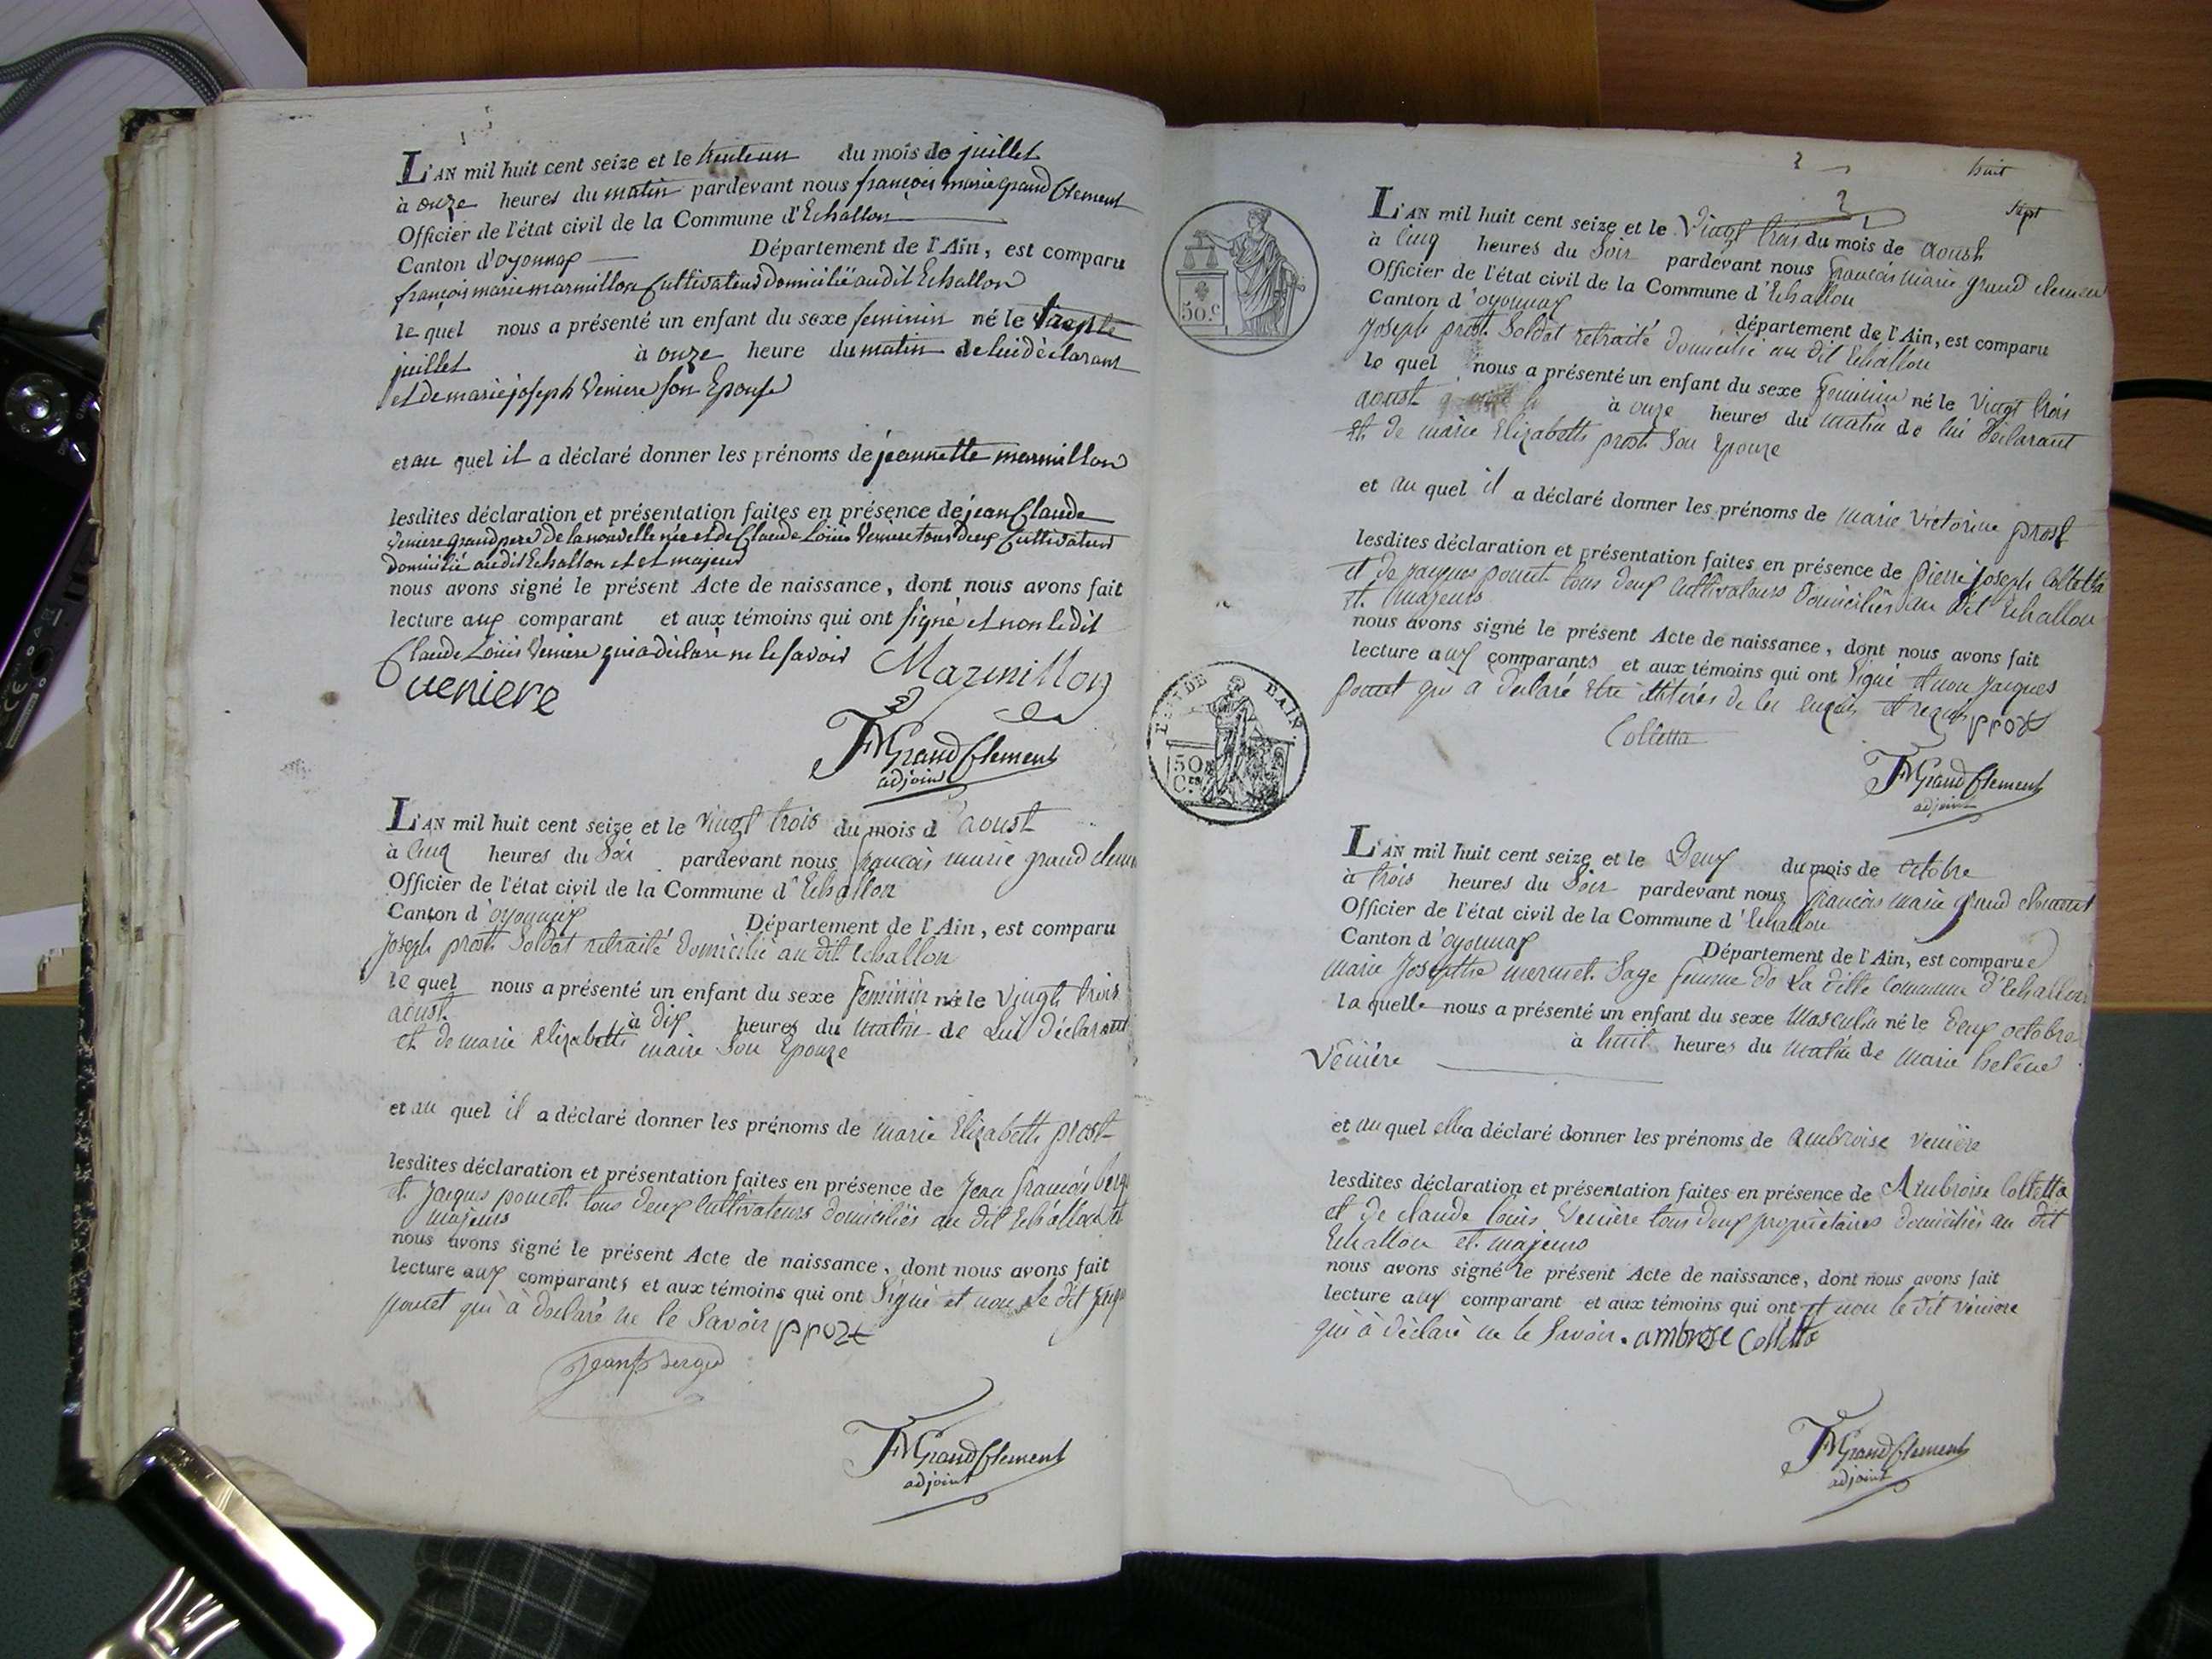 L'AN mil huit cent seize et le trente un du mois de juillet
à onze heures du matin pardevant nous françois marie grand Clement
Officier de l'état civil de la Commune d'Echallon
Canton d'oyonnax Département de l'Ain, est comparu
françois marie marmillon Cultivateur Domicilié audit Echallon
le quel nous a présenté un enfant du sexe feminin né le trente
juillet à onze heure du matin de lui déclarant
et de marie joseph Veniere son Epouse
et au quel il a déclaré donner les prénoms de jeannette marmillon
lesdites déclaration et présentation faites en présence de jean Claude
Veniere grand pere de la nouvelle née et de Claude Loüis Veniere tous deux Cultivateurs
domicilié audit Echallon et et majeur
nous avons signé le présent Acte de naissance, dont nous avons fait
lecture aux comparant et aux témoins qui ont signé et non le dit
Claude Loüis Veniere qui a déclaré ne le savoir Marmillon
veniere
FM Grand Clement
adjoint
L'AN mil huit cent seize et le vingt trois du mois d'aoust
à cinq heures du soir pardevant nous francois marie grand clem
Officier de l'état civil de la Commune d'Echallon
Canton d'oyonnax Département de l'Ain, est comparu
Joseph prost Soldat retraité domicilié au dit Echallon
le quel nous a présenté un enfant du sexe feminin né le vingt trois
aoust à dix heures du matin de Lui déclarant
et de marie Elizabeth maire Son Epouze
et au quel il a déclaré donner les prénoms de marie Elizabeth prost
lesdites déclaration et présentation faites en présence de Jean francois berg
et Jacques poncet tous deux cultivateurs domiciliés au dit Echallon et
majeurs
nous avons signé le présent Acte de naissance, dont nous avons fait
lecture aux comparants et aux témoins qui ont Signé et non le dit
poncet qui à déclaré ne le Savoir prost
jean f berger
FM Grand Clement
adjoint
huit
sept
L'AN mil huit cent seize et le Vingt trois du mois de aoust
à Cinq heures du Soir pardevant nous francois marie grand clemen
Officier de l'état civil de la Commune d'Echallon
Canton d'oyonnax département de l'Ain, est comparu
Joseph prost Soldat retraité domicilié au dit Echallon
le quel nous a présenté un enfant du sexe feminin né le vingt trois
aoust à onze heures du matin de lui déclarant
et de marie Elizabeth prost Son Epouze
et au quel il a déclaré donner les prénoms de marie victorine prost
lesdites déclaration et présentation faites en présence de pierre joseph Colletta
et de jacques poncet tous deux cultivateurs domiciliés au dit Echallon
et majeurs
nous avons signé le présent Acte de naissance, dont nous avons fait
lecture aux comparants et aux témoins qui ont Signé et non Jacques
poncet qui a déclaré Etre illitérés de les enquis et requis prost
Colletta
FM Grand Clement
adjoint
50.c
DE L'AIN.
50
Ces
L'AN mil huit cent seize et le Deux du mois de octobre
à trois heures du Soir pardevant nous francois marie grand clement
Officier de l'état civil de la Commune d'Echallon
Canton d'oyonnax Département de l'Ain, est comparue
marie Josephte mermet Sage femme de La ditte Commune d'Echallon
la quelle nous a présenté un enfant du sexe masculin né le deux octobre
à huit heures du matin de marie helene
Venière
et au quel elle a déclaré donner les prénoms de ambroise venière
lesdites déclaration et présentation faites en présence de Ambroise Colletta
et de claude louis Venière tous deux propriétaires domiciliés au dit
Echallon et majeurs
nous avons signé le présent Acte de naissance, dont nous avons fait
lecture aux comparant et aux témoins qui ont et non le dit vénière
qui à déclaré ne le Savoir. ambroise Colletta
FM Grand Clement
adjoint